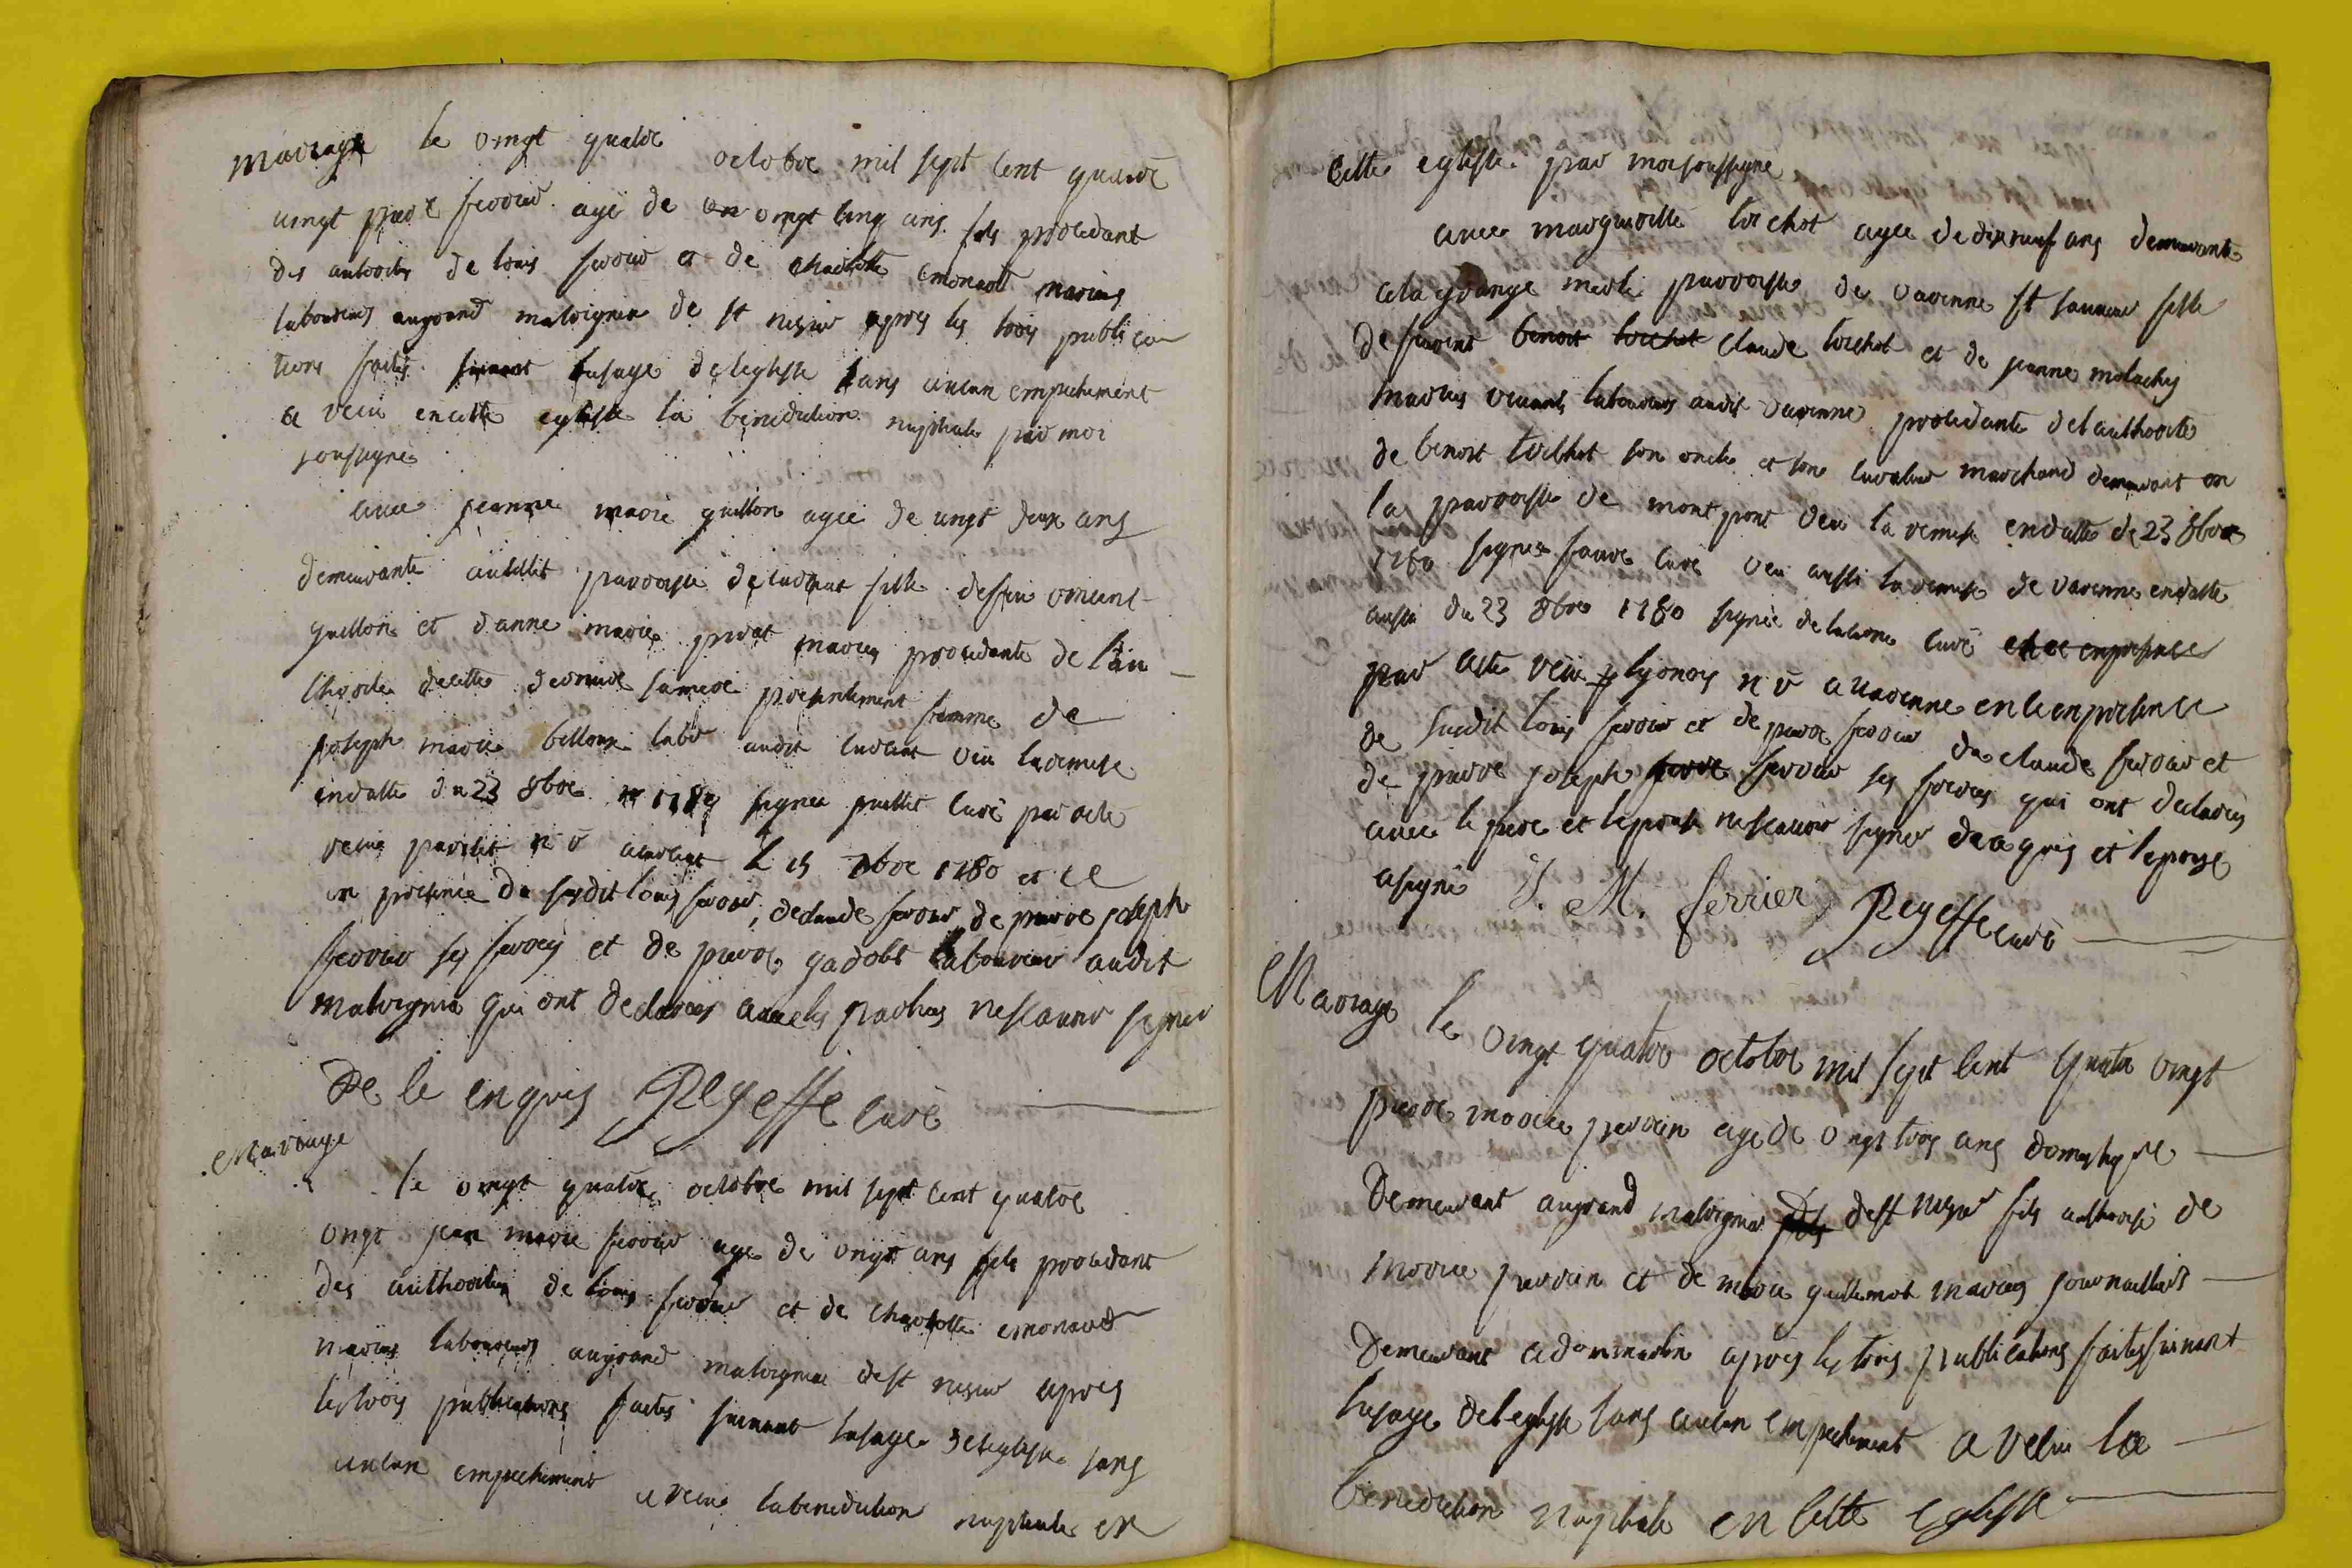 mariage le vingt quatre octobre mil sept cent quatre
vingt pierre ferrier agé de vingt cinq ans fils procedant
des autorités de louis ferrier et de charlotte emonard mariés
laboureurs augrand malvignia de st nisier apres les trois publica
tions faites suivant lusage deleglise sans aucun empechement
a recu encette eglise la benediction nuptiale par moi
soussigné
avec jeanne marie guillon agee de vingt deux ans
demeurante parroisse de fille deffeu vincent
guillon et danne marie mariés procedante de lau
thorité decette derniere samere presentement femme de
joseph marie labr audit veu laremise
endatte du 23 8bre 1780 signée curé par acte
recu n v le 15 1780 et ce
en presence du susdit louis ferrier, declaude ferrier, de pierre joseph
ferrier ses freres et de pierre laboureur audit
malvignia qui ont declarés avec les parties nescavoir signer
De ce enquis Regeffe curé
Mariage
le vingt quatre octobre mil sept cent quatre
vingt jean marie ferrier age de vingt ans fils procedant
des authorités de louis ferrier et de charlotte emonard
mariés laboureurs augrand malvignia dest nisier apres
les trois publications faites suivant lusage deleglise sans
aucun empechement a recu labenediction nuptiale en
cette eglise par moi soussigné
avec marguerite torchot agée dedixneuf ans demeurante
alagrange merle parroisse de varenne st sauveur fille
de benoit torchot claude torchot et de jeanne
mariés vivants laboureurs audit varenne procedante delauthorité
de benoit torchot son oncle et son curateur marchand demeurant en
la parroisse de montpont veu la remise endatte de 23 8bre
1780 signée curé veu aussi laremise de varenne endatte
aussi du 23 8bre 1780 signée curé et ce enpresence
par acte recu n v a varenne en ce enpresence
de susdit louis ferrier et de pierre ferrier de claude ferrier et
de pierre joseph ferrier ses freres qui ont declarés
avec le pere et lepouse nescavoir signer dece quis et lepoux
asigné J. M. ferrier Regeffe curé
Mariage le vingt quatre octobre mil sept cent quatre vingt
pierre marie perrin agé de vingt trois ans domestique
Demeurant augrand malvignia dest nisier fils authorisé de
marie perrin et de marie guillemot mariés journailliers
Demeurant adommartin apres les trois publications faites suivant
lusage deleglise sans aucun empechement a recu la
benediction nuptiale en cette eglise